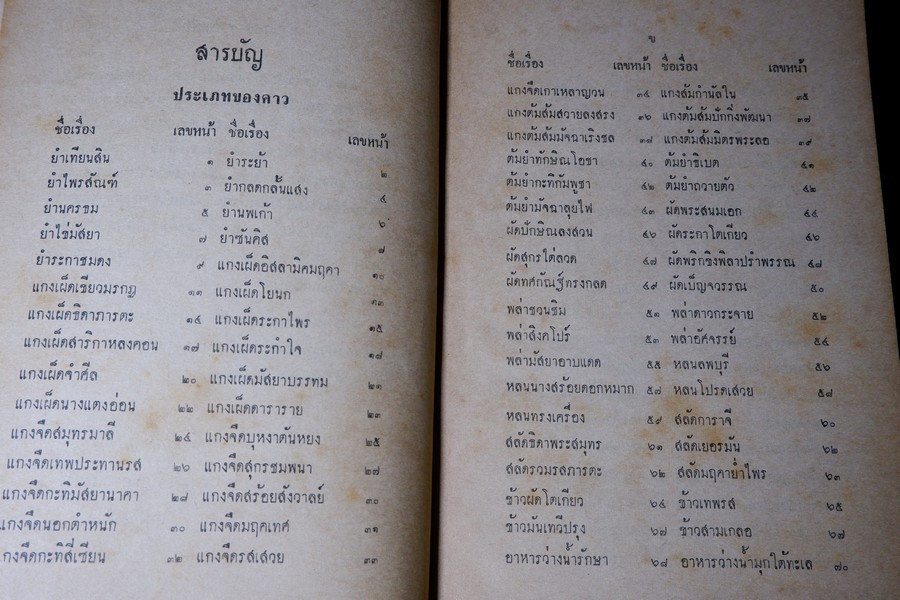 สารบัญ
ประเภทของคาว
ชื่อเรื่อง เลขหน้า ชื่อเรื่อง เลขหน้า
ยำเทียนสิน ๑ ยำระย้า ๒
ยำไพรสัณฑ์ ๓ ยำกลดกลั้นแสง ๔
ยำนครชม ๕ ยำนพเก้า ๖
ยำไข่มัสยา ๗ ยำซันคิส ๘
ยำระกาชมดง ๙ แกงเผ็ดอิสลามิคมฤคา ๑๐
แกงเผ็ดเขียวมรกฎ ๑๑ แกงเผ็ดโยนก ๑๓
แกงเผ็ดธิดาภารตะ ๑๔ แกงเผ็ดระกาไพร ๑๕
แกงเผ็ดสาริกาหลงคอน ๑๗ แกงเผ็ดระกำใจ ๑๗
แกงเผ็ดจำศีล ๒๐ แกงเผ็ดมัสยาบรรทม ๒๑
แกงเผ็ดนางแตงอ่อน ๒๒ แกงเผ็ดดาราราย ๒๓
แกงจืดสมุทรมาลี ๒๔ แกงจืดบุหงาตันหยง ๒๕
แกงจืดเทพประทานรส ๒๖ แกงจืดสุกรชมพนา ๒๗
แกงจืดกะทิมัสยานาคา ๒๘ แกงจืดสร้อยสังวาลย์ ๓๐
แกงจืดนอกตำหนัก ๓๐ แกงจืดมฤคเทศ ๓๑
แกงจืดกะทิสี่เซียน ๓๒ แกงจืดรสเสวย ๓๓
ข
ชื่อเรื่อง เลขหน้า ชื่อเรื่อง เลขหน้า
แกงจืดเกาเหลาญวน ๓๔ แกงส้มกำนัลใน ๓๕
แกงต้มส้มสวายลงสรง ๓๖ แกงต้มส้มปักกิ่งพัฒนา ๓๗
แกงต้มส้มมัจฉาเริงชล ๓๘ แกงต้มส้มมิตรพระลอ ๓๙
ต้มยำทักษิณโอชา ๔๐ ต้มยำธิเบต ๔๑
ต้มยำกะทิกัมพูชา ๔๒ ต้มยำถวายตัว ๔๒
ต้มยำมัจฉาลุยไฟ ๔๓ ผัดพระสนมเอก ๔๔
ผัดปักษิณลงสวน ๔๖ ผัดระกาโตเกียว ๔๖
ผัดสุกรไต่ลวด ๔๘ ผัดพริกขิงพิลาปรำพรรณ ๔๘
ผัดทศกัณฐ์ทรงกลด ๔๙ ผัดเบ็ญจวรรณ ๕๐
พล่าชวนชิม ๕๑ พล่าดาวกระจาย ๕๒
พล่าสิงคโปร์ ๕๓ พล่าอัศจรรย์ ๕๔
พล่ามัสยาอาบแดด ๕๕ หลนลพบุรี ๕๖
หลนนางสร้อยดอกหมาก ๕๗ หลนโปรดเสวย ๕๘
หลนทรงเครื่อง ๕๙ สลัดการาจี ๖๐
สลัดธิดาพระสมุทร ๖๑ สลัดเยอรมัน ๖๒
สลัดรวมรสภารตะ ๖๒ สลัดมฤคาย่ำไพร ๖๓
ข้าวผัดโตเกียว ๖๔ ข้าวเทพรส ๖๕
ข้าวมันเทวีปรุง ๖๗ ข้าวสามเกลอ ๖๗
อาหารว่างน้ำรักษา ๖๘ อาหารว่างน้ำมุกใต้ทะเล ๗๐